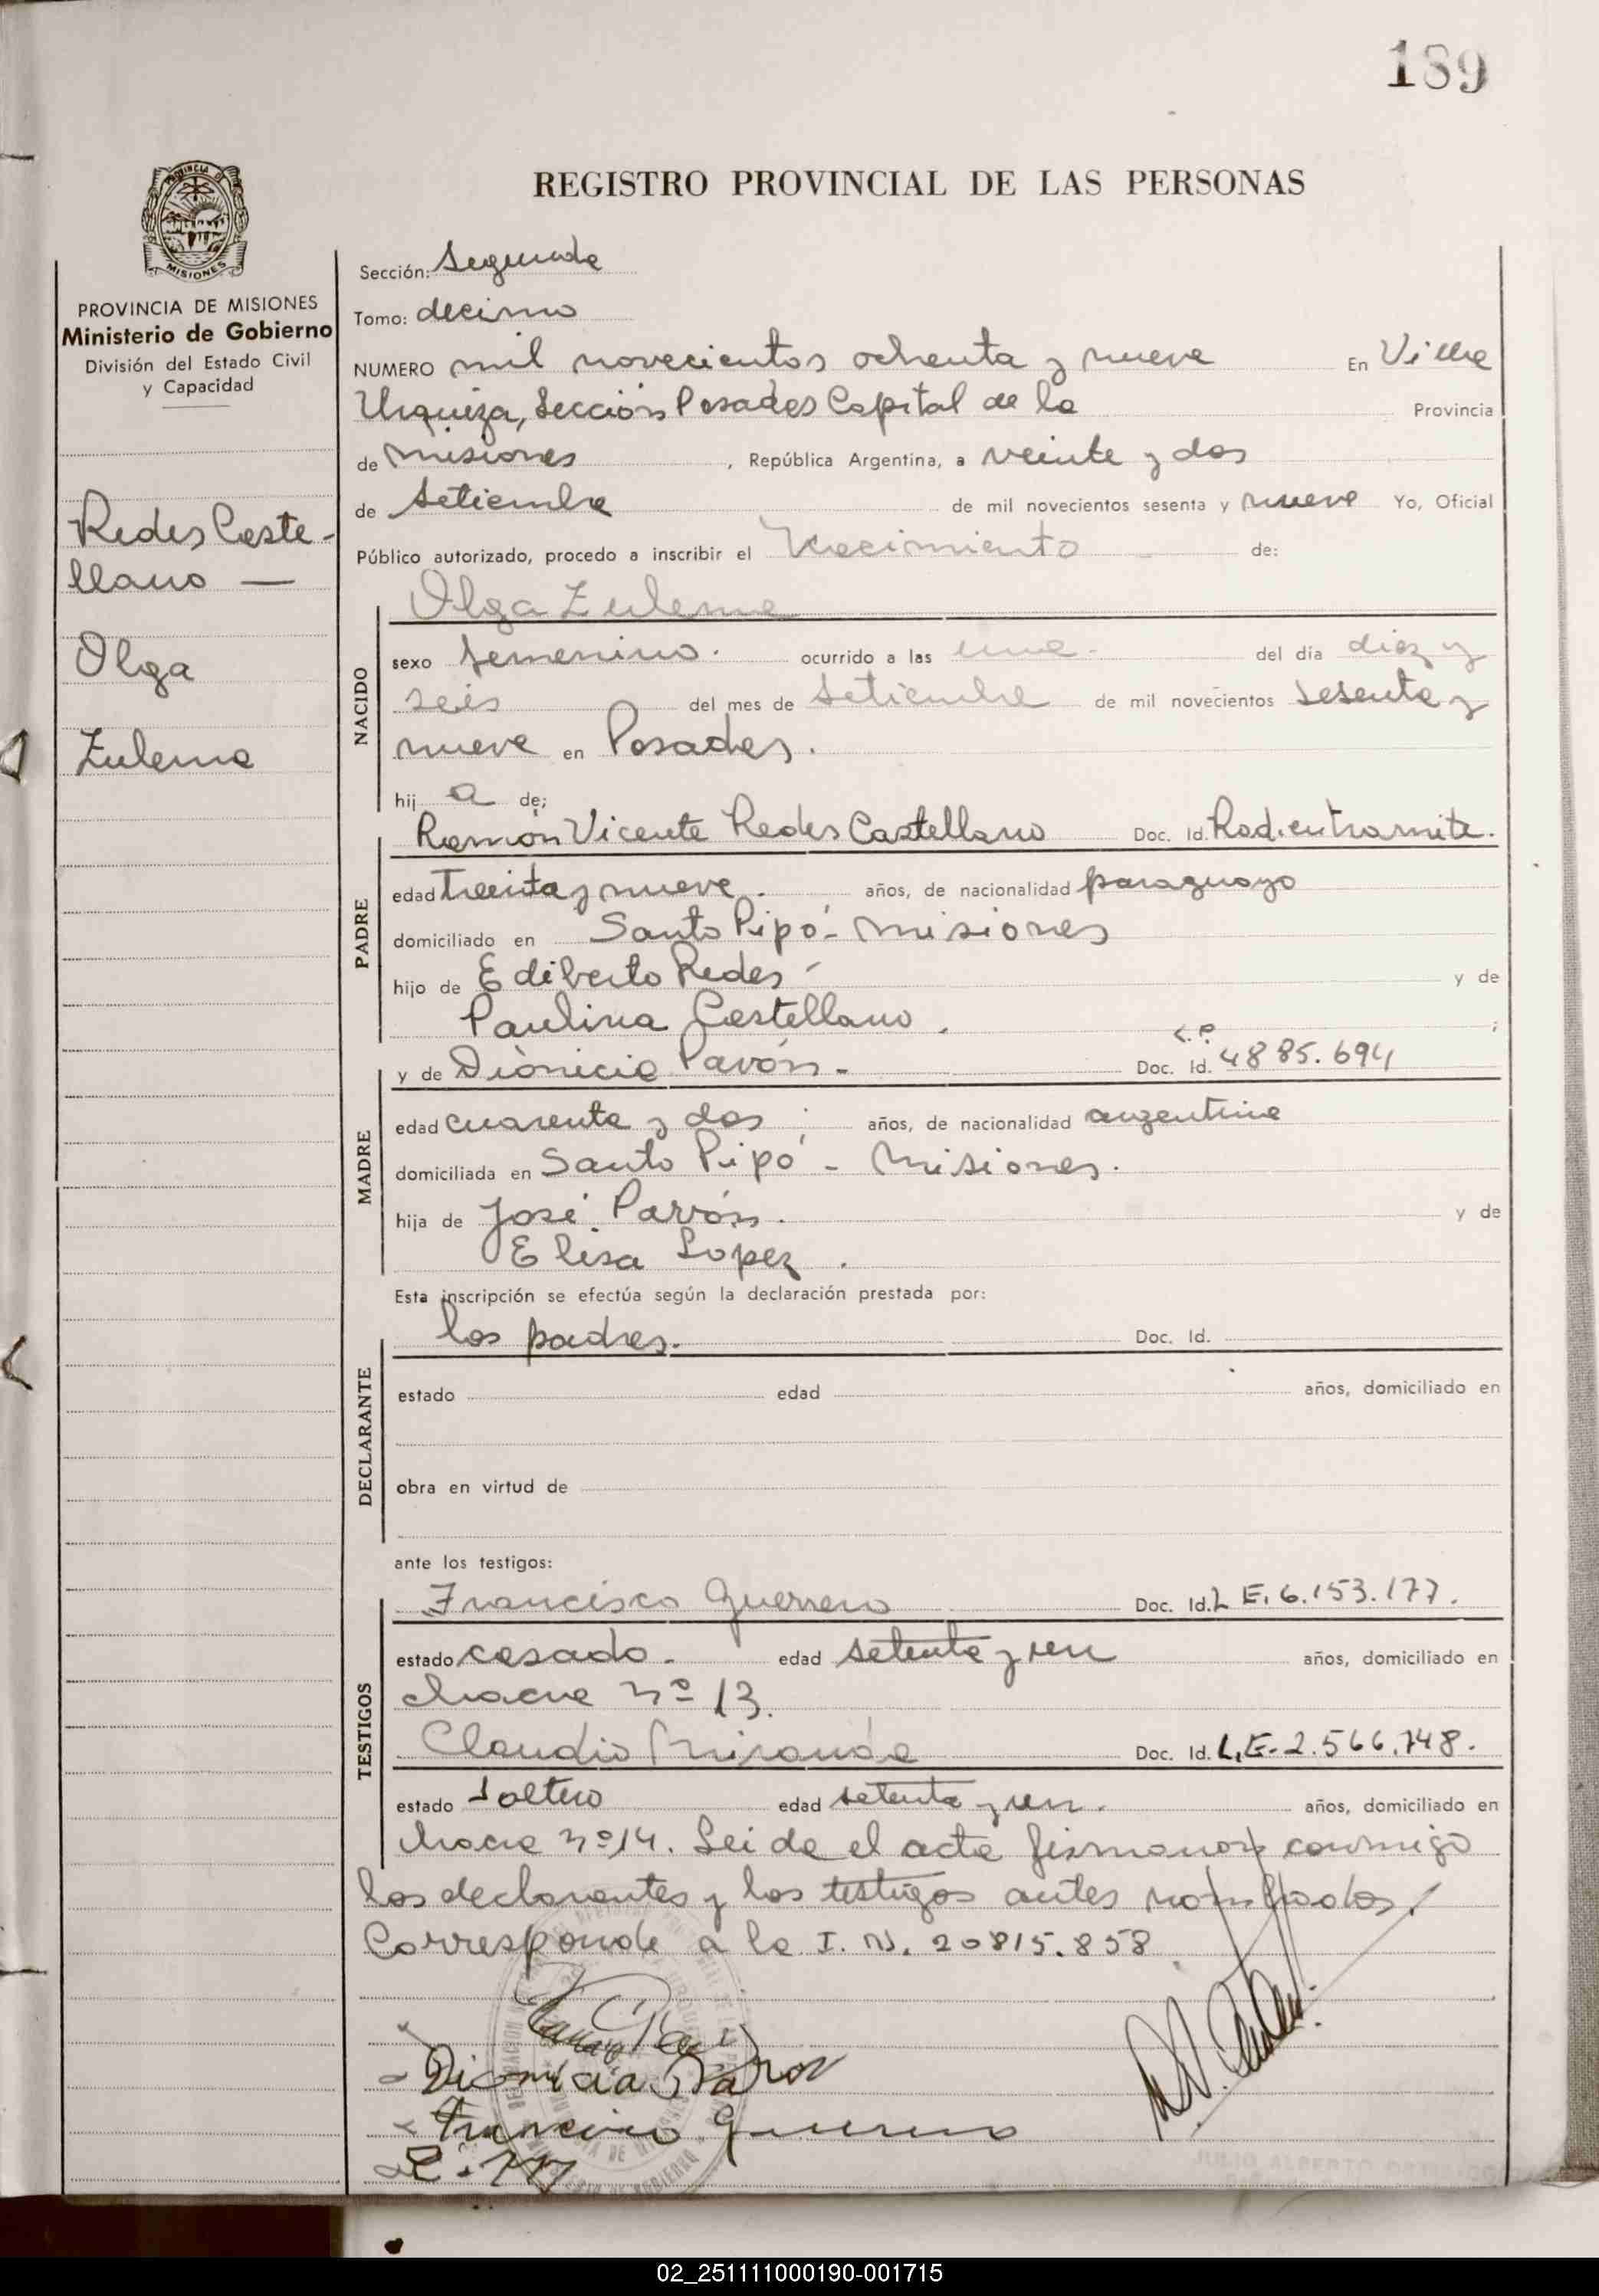 189
PROVINCIA DE
MISIONES
PROVINCIA DE MISIONES
Ministerio de Gobierno
División del Estado Civil
y Capacidad
Redes Caste-
llano —
Olga
Zulema
REGISTRO PROVINCIAL DE LAS PERSONAS
Sección: Segunda
Tomo: decimo
NUMERO mil novecientos ochenta y nueve En Villa
Urquiza, Sección Posadas Capital de la Provincia
de Misiones, República Argentina, a veinte y dos
de Setiembre de mil novecientos sesenta y nueve Yo, Oficial
Público autorizado, procedo a inscribir el Nacimiento de:
Olga Zulema
NACIDO
sexo femenino. ocurrido a las una. del día diez y
seis del mes de Setiembre de mil novecientos sesenta y
nueve en Posadas.
hij a de;
Ramón Vicente Redes Castellano Doc. Id. Rad. en tramite.
PADRE
edad Treinta y nueve. años, de nacionalidad paraguayo
domiciliado en Santo Pipó - Misiones
hijo de Ediberto Redes - y de
Paulina Castellano. ;
y de Dionicia Pavón. - Doc. Id. C.P. 4885.694
MADRE
edad cuarenta y dos; años, de nacionalidad argentina
domiciliada en Santo Pipó - Misiones.
hija de José Pavón. y de
Elisa Lopez.
Esta inscripción se efectúa según la declaración prestada por:
los padres. Doc. Id.
DECLARANTE
estado edad años, domiciliado en
obra en virtud de
ante los testigos:
Francisco Guerrero Doc. Id. L E. 6.153.177.
TESTIGOS
estado casado. edad setenta y un años, domiciliado en
chacra nº 13.
Claudio Miranda Doc. Id. L.E. 2.566.748.
estado soltero edad setenta y un. años, domiciliado en
chacra nº 14. Leida el acta firmaron conmigo
los declarantes y los testigos antes nombrados.
Corresponde a la I. N. 20815.858
Dionicia Pavon
Francisco Guerrero
JULIO ALBERTO
02_251111000190-001715